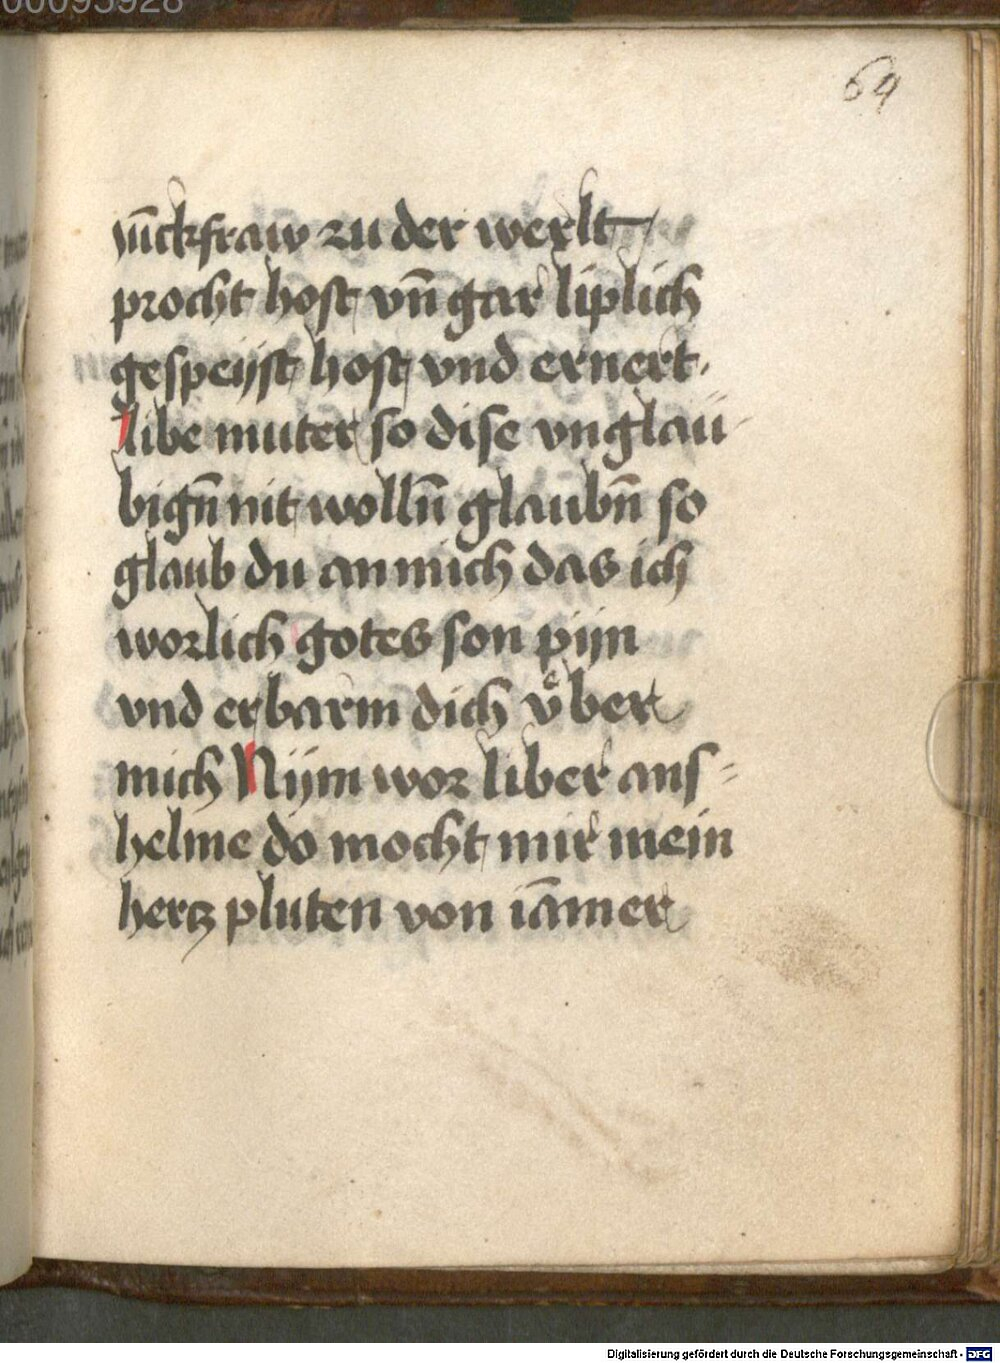 00095928
64
iūckfraw zu der werlt
procht host vn̄ gar liplich
gespeyst host vnd ernert.
libe muter so dise vnglau-
bign̄ nit wolln̄ glaubn̄ so
glaub du an mich das ich
worlich gotes son pyn
vnd erbarm dich vͤber
mich Nym wor liber ans=
helme do mocht mir mein
hercz pluten von iāmer
Digitalisierung gefördert durch die Deutsche Forschungsgemeinschaft - DFG